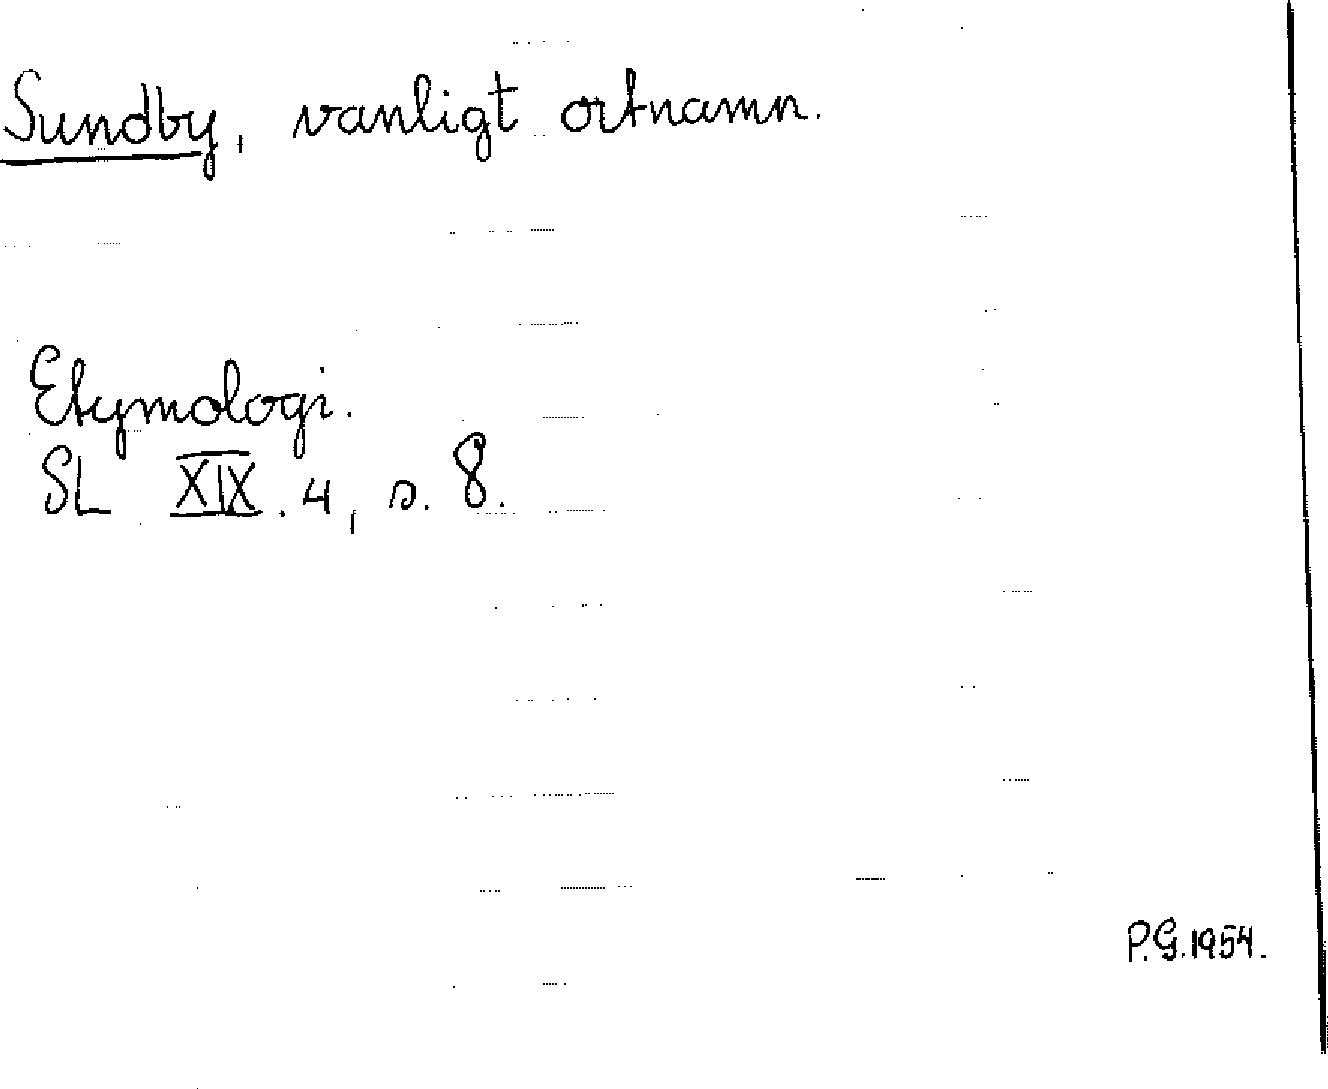 Sundby, vanligt ortnamn.
Etymologi.
SL XIX. 4, s. 8.
P.G. 1954.